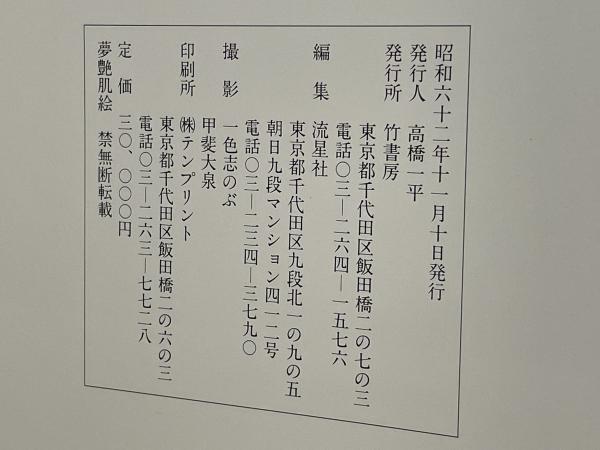 昭和六十二年十一月十日発行
発行人 高橋一平
発行所 竹書房
東京都千代田区飯田橋二の七の三
電話〇三―二六四―一五七六
編集 流星社
東京都千代田区九段北一の九の五
朝日九段マンション四一二号
電話〇三―二三四―三七九〇
撮影 一色志のぶ
甲斐大泉
印刷所 ㈱テンプリント
東京都千代田区飯田橋二の六の三
電話〇三―二六三―七七二八
定価 三〇、〇〇〇円
夢艶肌絵 禁無断転載